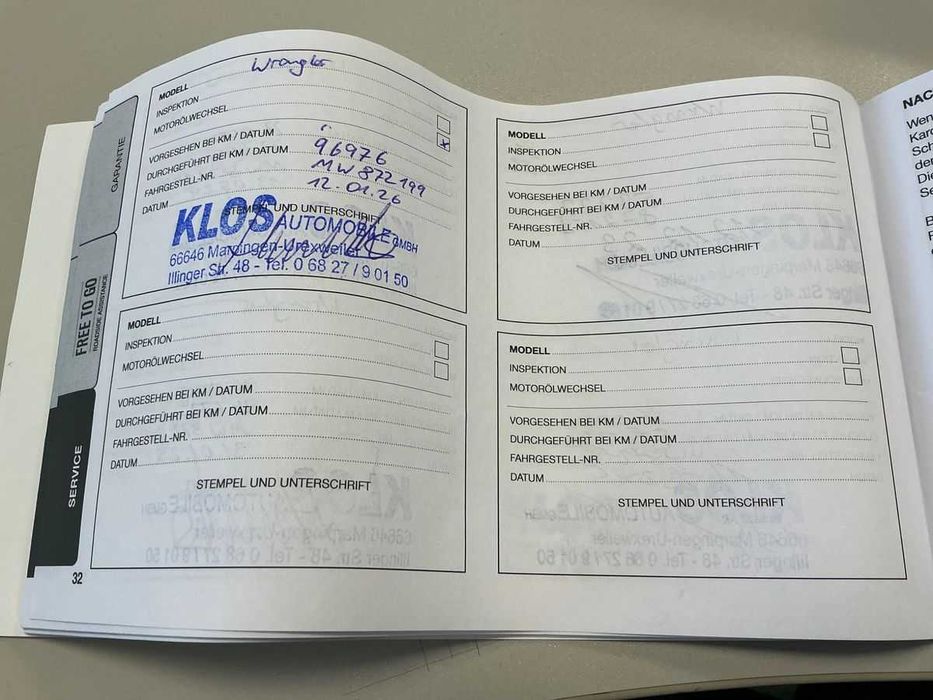 GARANTIE
FREE TO GO
ROADSIDE ASSISTANCE
SERVICE
32
MODELL Wrangler
INSPEKTION
MOTORÖLWECHSEL x
VORGESEHEN BEI KM / DATUM
DURCHGEFÜHRT BEI KM / DATUM 96976
FAHRGESTELL-NR. MW 872 199
DATUM 12.01.26
STEMPEL UND UNTERSCHRIFT
KLOS AUTOMOBILE GMBH
66646 Marpingen-Urexweiler
Illinger Str. 48 - Tel. 0 68 27 / 9 01 50
MODELL
INSPEKTION
MOTORÖLWECHSEL
VORGESEHEN BEI KM / DATUM
DURCHGEFÜHRT BEI KM / DATUM
FAHRGESTELL-NR.
DATUM
STEMPEL UND UNTERSCHRIFT
MODELL
INSPEKTION
MOTORÖLWECHSEL
VORGESEHEN BEI KM / DATUM
DURCHGEFÜHRT BEI KM / DATUM
FAHRGESTELL-NR.
DATUM
STEMPEL UND UNTERSCHRIFT
MODELL
INSPEKTION
MOTORÖLWECHSEL
VORGESEHEN BEI KM / DATUM
DURCHGEFÜHRT BEI KM / DATUM
FAHRGESTELL-NR.
DATUM
STEMPEL UND UNTERSCHRIFT
NAC
Wen
Karo
Sch
der
Die
Se